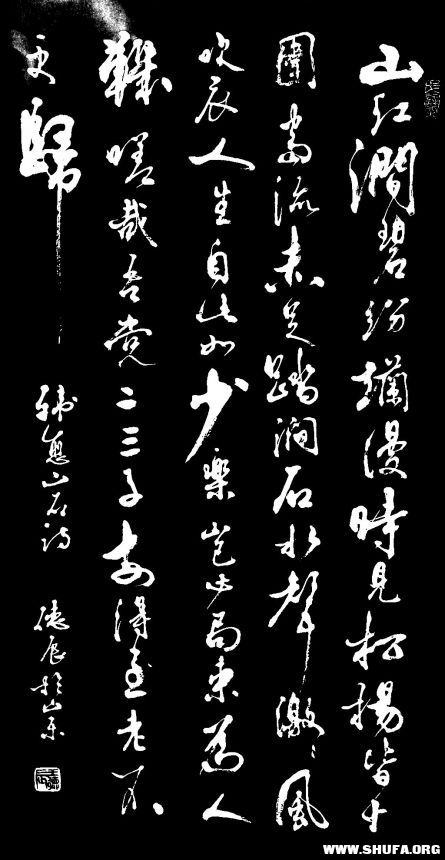 山紅澗碧紛爛漫時見松楊皆十
圍當流赤足踏澗石水聲激〻風
吹衣人生自此如少樂豈必局束為人
鞿嗟哉吾党二三子安得至老不
更歸
韓愈山石詩 德辰於山東
WWW.SHUFA.ORG